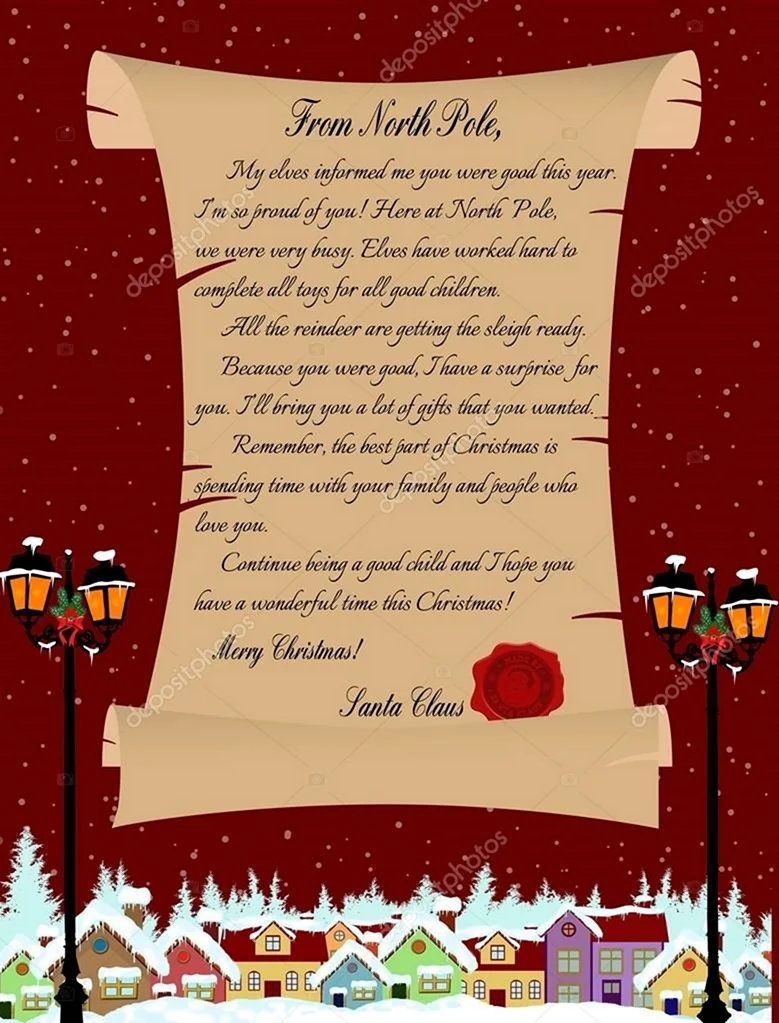 From North Pole,
My elves informed me you were good this year.
I'm so proud of you! Here at North Pole,
we were very busy. Elves have worked hard to
complete all toys for all good children.
All the reindeer are getting the sleigh ready.
Because you were good, I have a surprise for
you. I'll bring you a lot of gifts that you wanted.
Remember, the best part of Christmas is
spending time with your family and people who
love you.
Continue being a good child and I hope you
have a wonderful time this Christmas!
Merry Christmas!
MADE BY
Santa Claus
SANTA CLAUS
depositphotos
depositphotos
depositphotos
depositphotos
depositphotos
depositphotos
depositphotos